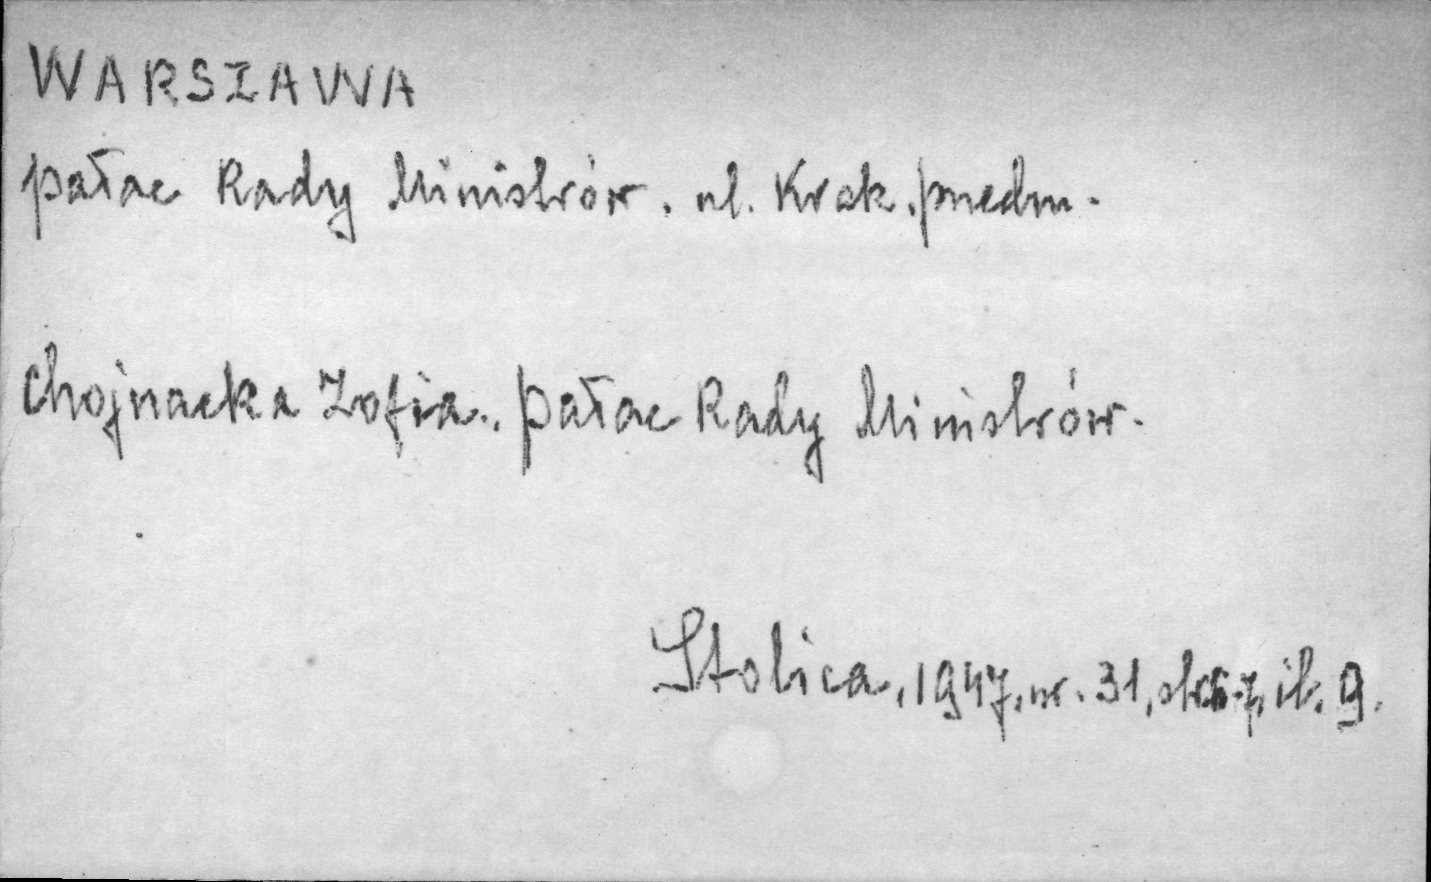 WARSZAWA
pałac Rady Ministrów. ul. Krak. przedm.
Chojnacka Zofia., pałac Rady Ministrów.
Stolica, 1947, nr. 31, str. 6-7, il. 9.